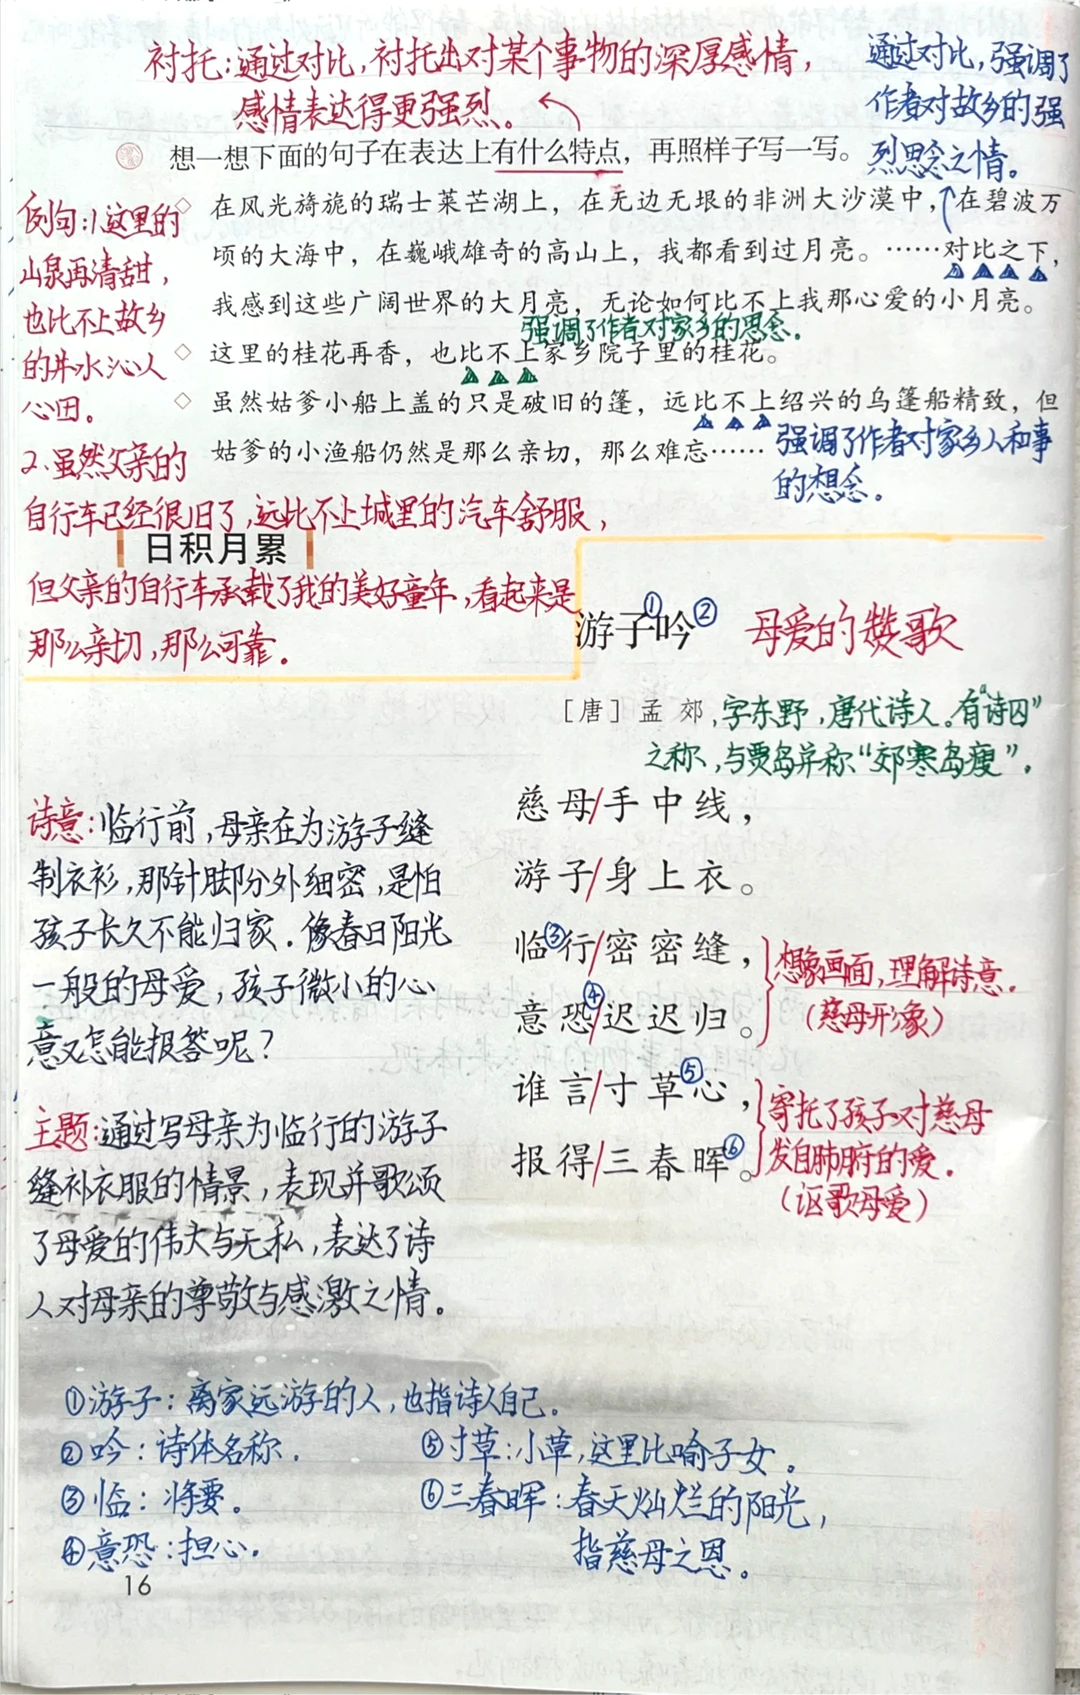 衬托:通过对比,衬托出对某个事物的深厚感情,
感情表达得更强烈。
通过对比,强调了
作者对故乡的强
烈思念之情。
想一想下面的句子在表达上有什么特点，再照样子写一写。
◇ 在风光旖旎的瑞士莱芒湖上，在无边无垠的非洲大沙漠中，在碧波万
顷的大海中，在巍峨雄奇的高山上，我都看到过月亮。……对比之下，
我感到这些广阔世界的大月亮，无论如何比不上我那心爱的小月亮。
强调了作者对家乡的思念.
◇ 这里的桂花再香，也比不上家乡院子里的桂花。
◇ 虽然姑爹小船上盖的只是破旧的篷，远比不上绍兴的乌篷船精致，但
姑爹的小渔船仍然是那么亲切，那么难忘……
强调了作者对家乡人和事
的想念。
例句:1.这里的
山泉再清甜,
也比不上故乡
的井水沁人
心田。
2.虽然父亲的
自行车已经很旧了,远比不上城里的汽车舒服,
但父亲的自行车承载了我的美好童年,看起来是
那么亲切,那么可靠。
日积月累
游子①吟②
母爱的赞歌
［唐］孟 郊
,字东野,唐代诗人。有“诗囚”
之称,与贾岛并称“郊寒岛瘦”.
慈母/手中线，
游子/身上衣。
临③行/密密缝，
意恐④/迟迟归。
想象画面,理解诗意.
(慈母形象)
谁言/寸草⑤心，
报得/三春晖⑥。
寄托了孩子对慈母
发自肺腑的爱.
(讴歌母爱)
诗意:临行前,母亲在为游子缝
制衣衫,那针脚分外细密,是怕
孩子长久不能归家.像春日阳光
一般的母爱,孩子微小的心
意又怎能报答呢?
主题:通过写母亲为临行的游子
缝补衣服的情景,表现并歌颂
了母爱的伟大与无私,表达了诗
人对母亲的尊敬与感激之情。
①游子:离家远游的人,也指诗人自己.
②吟:诗体名称.
③临:将要。
④意恐:担心.
⑤寸草:小草,这里比喻子女.
⑥三春晖:春天灿烂的阳光,
指慈母之恩。
16